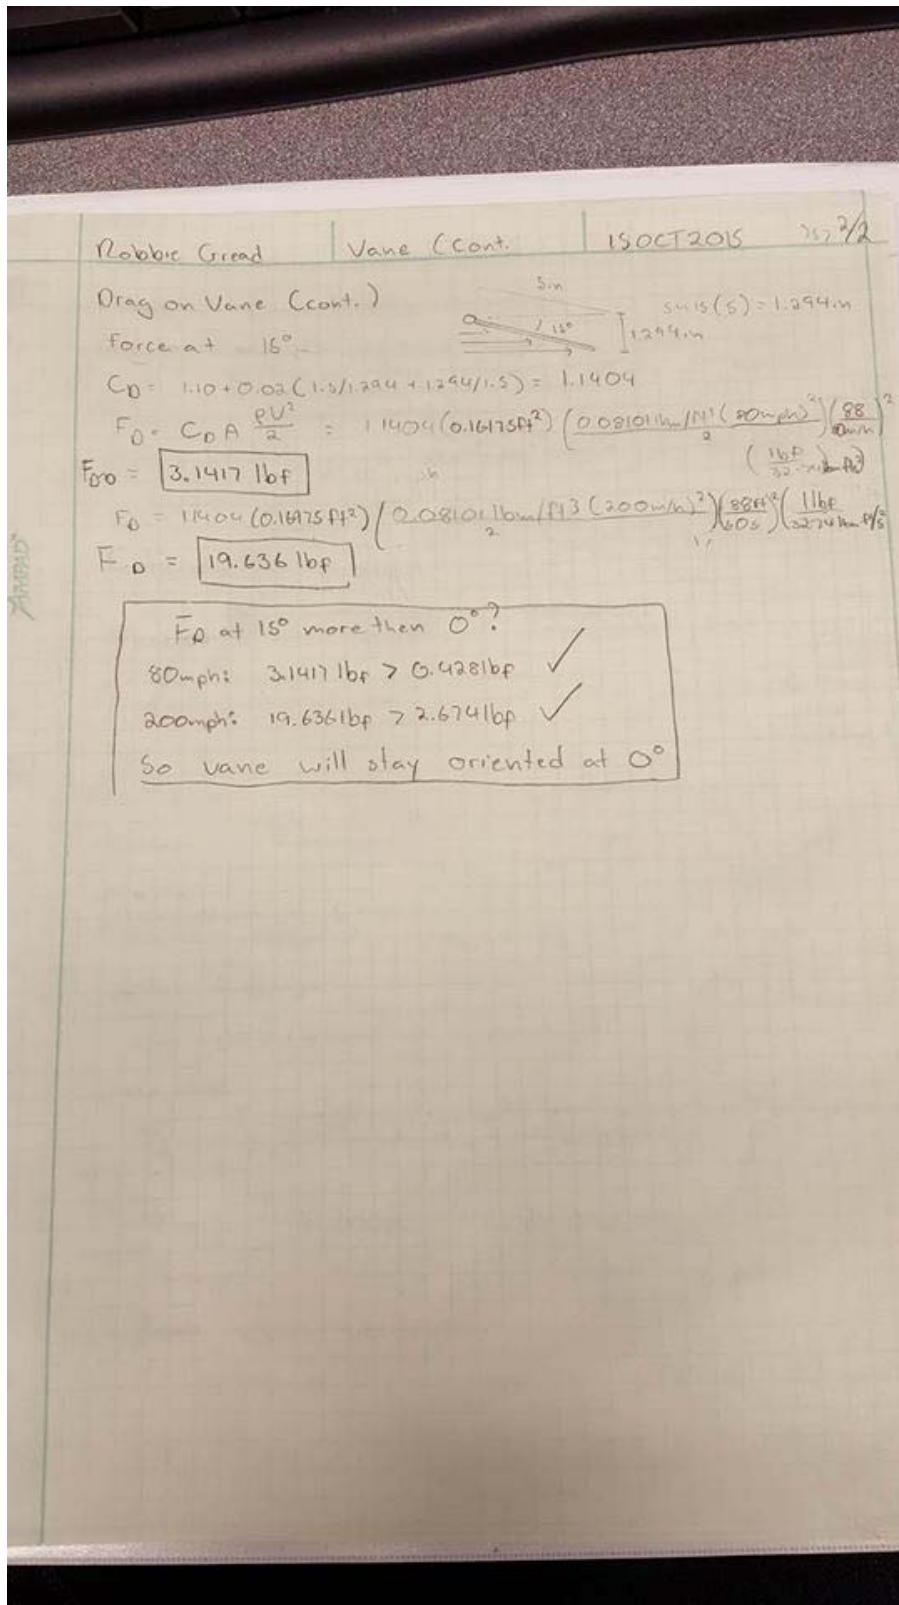 Robbie Gread Vane (Cont. 15OCT2015 2/2
Drag on Vane (cont.)
5in
sin15(5) = 1.294in
Force at 15°
15°
1.294in
CD = 1.10+0.02(1.5/1.294 + 1.294/1.5) = 1.1404
FD = CD A ρV²/2 = 1.1404(0.16175ft²) (0.08101lbm/ft³(80mph)²/2)(88
FDo = 3.1417 lbf
FD = 1.1404(0.16175ft²)(0.08101lbm/ft3(200m/h)²/2)(88ft/60s)²(1lbf/32.174lbm ft/s²
FD = 19.636 lbf
AMPAD
FD at 15° more then 0°?
80mph: 3.1417 lbf > 0.428lbf ✓
200mph: 19.636lbf > 2.674lbf ✓
So vane will stay oriented at 0°